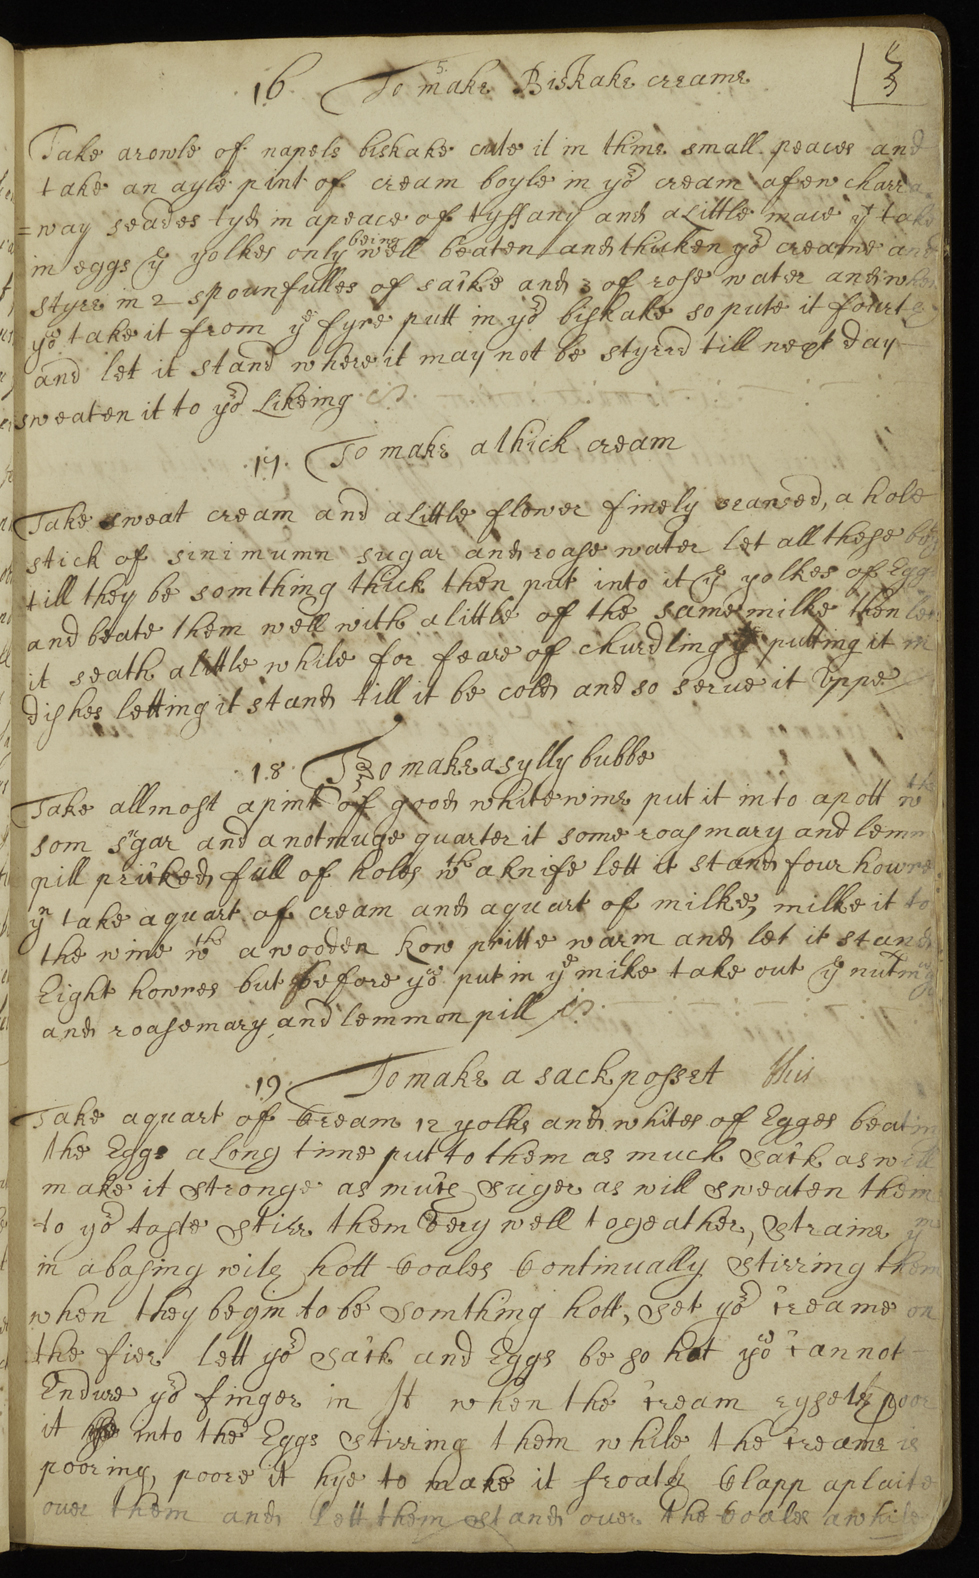 3
16 To make Biskake creame
5
Take arowle of napels biskake cute it in thine small peaces and
take an ayle pint of cream boyle in yor cream afew charra
=way seades tyed in apeace of tyffany and alittle mace yn take
in eggs ye yolkes only being well beaten and thicken yor creame and
styre in 2 spounfulles of sacke and 3 of rose water and when
you take it from ye fyre putt in yor biskake so pute it fourth
and let it stand where it may not be styred till next day
sweaten it to yor likeing
17. To make a thick cream
Take sweat cream and alittle flower finely searsed, a hole
stick of sinimumn sugar and roase water let all these boy
till they be somthing thick then put into it ye yolkes of Eggs
and beate them well with alittle of the same milke then let
it seath alittle while for feare of churdling putting it in
dishes letting it stand till it be cold and so serve it vppe
18 To make a sylly bubbe
Take allmost apint of good white wine put it into apott wth
som sugar and anotmuge quarter it some roasmary and lemm
pill pricked full of holes wth aknife lett it stand four howre
yn take aquart of cream and aquart of milke, milke it to
the wine wth awooden kow pritte warm and let it stand
Eight howres but before you put in ye milke take out ye nutmeg
and roasemary and lemmon pill
19. To make a sack posset this
Take aquart of Cream 12 yolks and whites of Egges beating
the Eggs along time put to them as much Sack as will
make it Stronge as much Suger as will Sweaten them
to yor taste Stirr them very well togeather, Straine ym
in abasing with hott Coales Continually Stirring them
when they begin to be Somthing hott, Set yor Creame on
the fier lett yor Sack and Eggs be so hot you cannot
Endure yor finger in It when the Cream ryseth poor
it into the Eggs Stirring them while the Creame is
pooring, poore it hye to make it froath Clapp aplaite
over them and lett them Stand over the Coales awhile